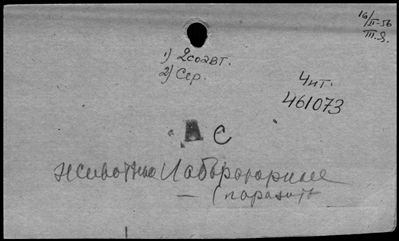 16/II-56
III.З.
1) 2соавт.
2) Сер.
Чит.
461073
А С
Животные Лабораторные
— (паразит